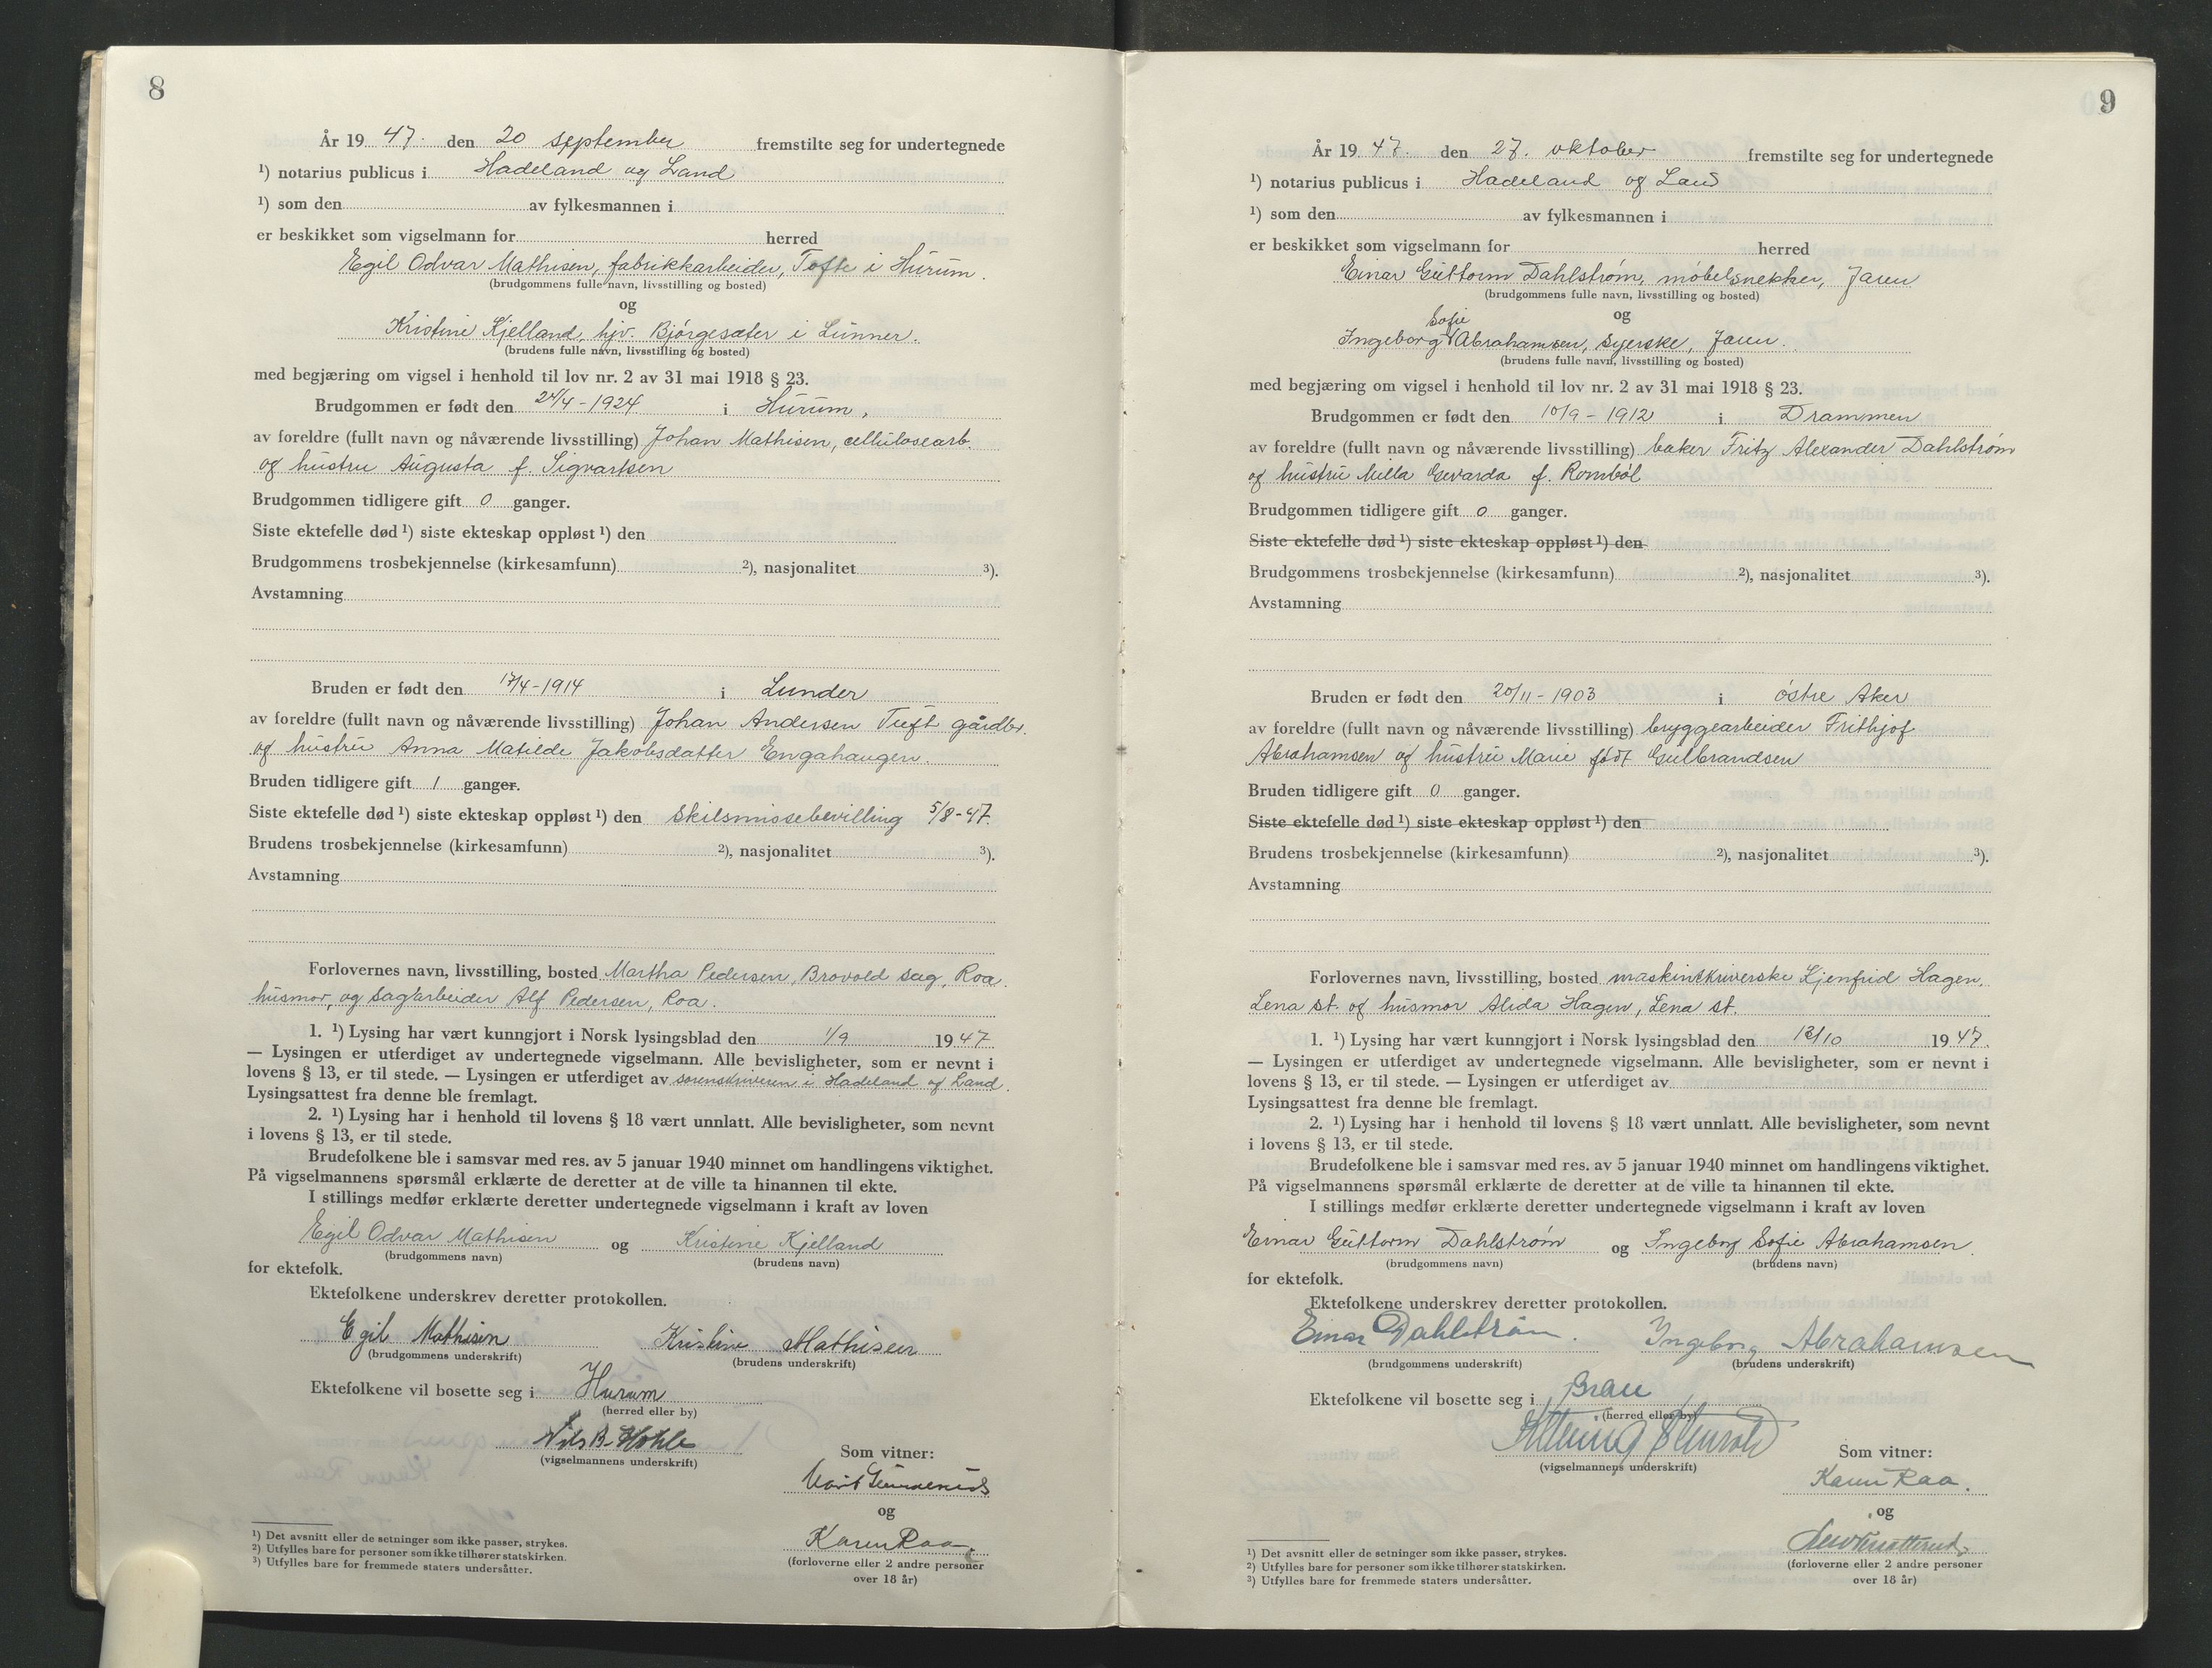 8
År 19 47. den 20 september fremstilte seg for undertegnede
¹) notarius publicus i Hadeland og Land
¹) som den av fylkesmannen i
er beskikket som vigselmann for herred
Egil Odvar Mathisen, fabrikkarbeider, Tofte i Hurum.
(brudgommens fulle navn, livsstilling og bosted)
og
Kristine Kjelland, hjv. Bjørgesæter i Lunner.
(brudens fulle navn, livsstilling og bosted)
med begjæring om vigsel i henhold til lov nr. 2 av 31 mai 1918 § 23.
Brudgommen er født den 24/4 - 1924 i Hurum,
av foreldre (fullt navn og nåværende livsstilling) Johan Mathisen, cellulosearb.
og hustru Augusta f. Sigvartsen
Brudgommen tidligere gift 0 ganger.
Siste ektefelle død ¹) siste ekteskap oppløst ¹) den
Brudgommens trosbekjennelse (kirkesamfunn) ²), nasjonalitet ³).
Avstamning
Bruden er født den 17/4 - 1914 i Lunder
av foreldre (fullt navn og nåværende livsstilling) Johan Andersen Tuft gårdbr.
og hustru Anna Matilde Jakobsdatter Engahaugen.
Bruden tidligere gift 1 ganger.
Siste ektefelle død ¹) siste ekteskap oppløst ¹) den Skilsmissebevilling 5/8-47.
Brudens trosbekjennelse (kirkesamfunn) ²), nasjonalitet ³).
Avstamning
Forlovernes navn, livsstilling, bosted Martha Pedersen, Brovold sag, Roa.
husmor, og sagarbeider Alf Pedersen, Roa.
1. ¹) Lysing har vært kunngjort i Norsk lysingsblad den 1/9 1947
— Lysingen er utferdiget av undertegnede vigselmann. Alle bevisligheter, som er nevnt i
lovens § 13, er til stede. — Lysingen er utferdiget av sorenskriveren i Hadeland og Land.
Lysingsattest fra denne ble fremlagt.
2. ¹) Lysing har i henhold til lovens § 18 vært unnlatt. Alle bevisligheter, som nevnt
i lovens § 13, er til stede.
Brudefolkene ble i samsvar med res. av 5 januar 1940 minnet om handlingens viktighet.
På vigselmannens spørsmål erklærte de deretter at de ville ta hinannen til ekte.
I stillings medfør erklærte deretter undertegnede vigselmann i kraft av loven
Egil Odvar Mathisen og Kristine Kjelland
(brudgommens navn) (brudens navn)
for ektefolk.
Ektefolkene underskrev deretter protokollen.
Egil Mathisen Kristine Mathisen
(brudgommens underskrift) (brudens underskrift)
Ektefolkene vil bosette seg i Hurum
(herred eller by)
Nils B. Hohle
(vigselmannens underskrift)
Som vitner:
og
Karen Raa.
(forloverne eller 2 andre personer
over 18 år)
¹) Det avsnitt eller de setninger som ikke passer, strykes.
²) Utfylles bare for personer som ikke tilhører statskirken.
³) Utfylles bare for fremmede staters undersåtter.
9
År 19 47. den 27. oktober fremstilte seg for undertegnede
¹) notarius publicus i Hadeland og Land
¹) som den av fylkesmannen i
er beskikket som vigselmann for herred
Einar Guttorm Dahlstrøm, møbelsnekker, Jaren
(brudgommens fulle navn, livsstilling og bosted)
og
Sofie
Ingeborg Abrahamsen, syerske, Jaren.
(brudens fulle navn, livsstilling og bosted)
med begjæring om vigsel i henhold til lov nr. 2 av 31 mai 1918 § 23.
Brudgommen er født den 10/9 - 1912 i Drammen
av foreldre (fullt navn og nåværende livsstilling) baker Fritz Alexander Dahlstrøm
og hustru Milla Gevarda f. Rombøl
Brudgommen tidligere gift 0 ganger.
Siste ektefelle død ¹) siste ekteskap oppløst ¹) den
Brudgommens trosbekjennelse (kirkesamfunn) ²), nasjonalitet ³).
Avstamning
Bruden er født den 20/11 - 1903 i østre Aker
av foreldre (fullt navn og nåværende livsstilling) bryggearbeider Frithjof
Abrahamsen og hustru Marie født Gulbrandsen
Bruden tidligere gift 0 ganger.
Siste ektefelle død ¹) siste ekteskap oppløst ¹) den
Brudens trosbekjennelse (kirkesamfunn) ²), nasjonalitet ³).
Avstamning
Forlovernes navn, livsstilling, bosted maskinskriverske Kjenfrid Hagen,
Lena st. og husmor Alida Hagen, Lena st.
1. ¹) Lysing har vært kunngjort i Norsk lysingsblad den 13/10 1947.
— Lysingen er utferdiget av undertegnede vigselmann. Alle bevisligheter, som er nevnt i
lovens § 13, er til stede. — Lysingen er utferdiget av
Lysingsattest fra denne ble fremlagt.
2. ¹) Lysing har i henhold til lovens § 18 vært unnlatt. Alle bevisligheter, som nevnt
i lovens § 13, er til stede.
Brudefolkene ble i samsvar med res. av 5 januar 1940 minnet om handlingens viktighet.
På vigselmannens spørsmål erklærte de deretter at de ville ta hinannen til ekte.
I stillings medfør erklærte deretter undertegnede vigselmann i kraft av loven
Einar Guttorm Dahlstrøm og Ingeborg Sofie Abrahamsen.
(brudgommens navn) (brudens navn)
for ektefolk.
Ektefolkene underskrev deretter protokollen.
Einar Dahlstrøm. Ingeborg Abrahamsen
(brudgommens underskrift) (brudens underskrift)
Ektefolkene vil bosette seg i Bran
(herred eller by)
(vigselmannens underskrift)
Som vitner:
Karen Raa.
og
(forloverne eller 2 andre personer
over 18 år)
¹) Det avsnitt eller de setninger som ikke passer, strykes.
²) Utfylles bare for personer som ikke tilhører statskirken.
³) Utfylles bare for fremmede staters undersåtter.